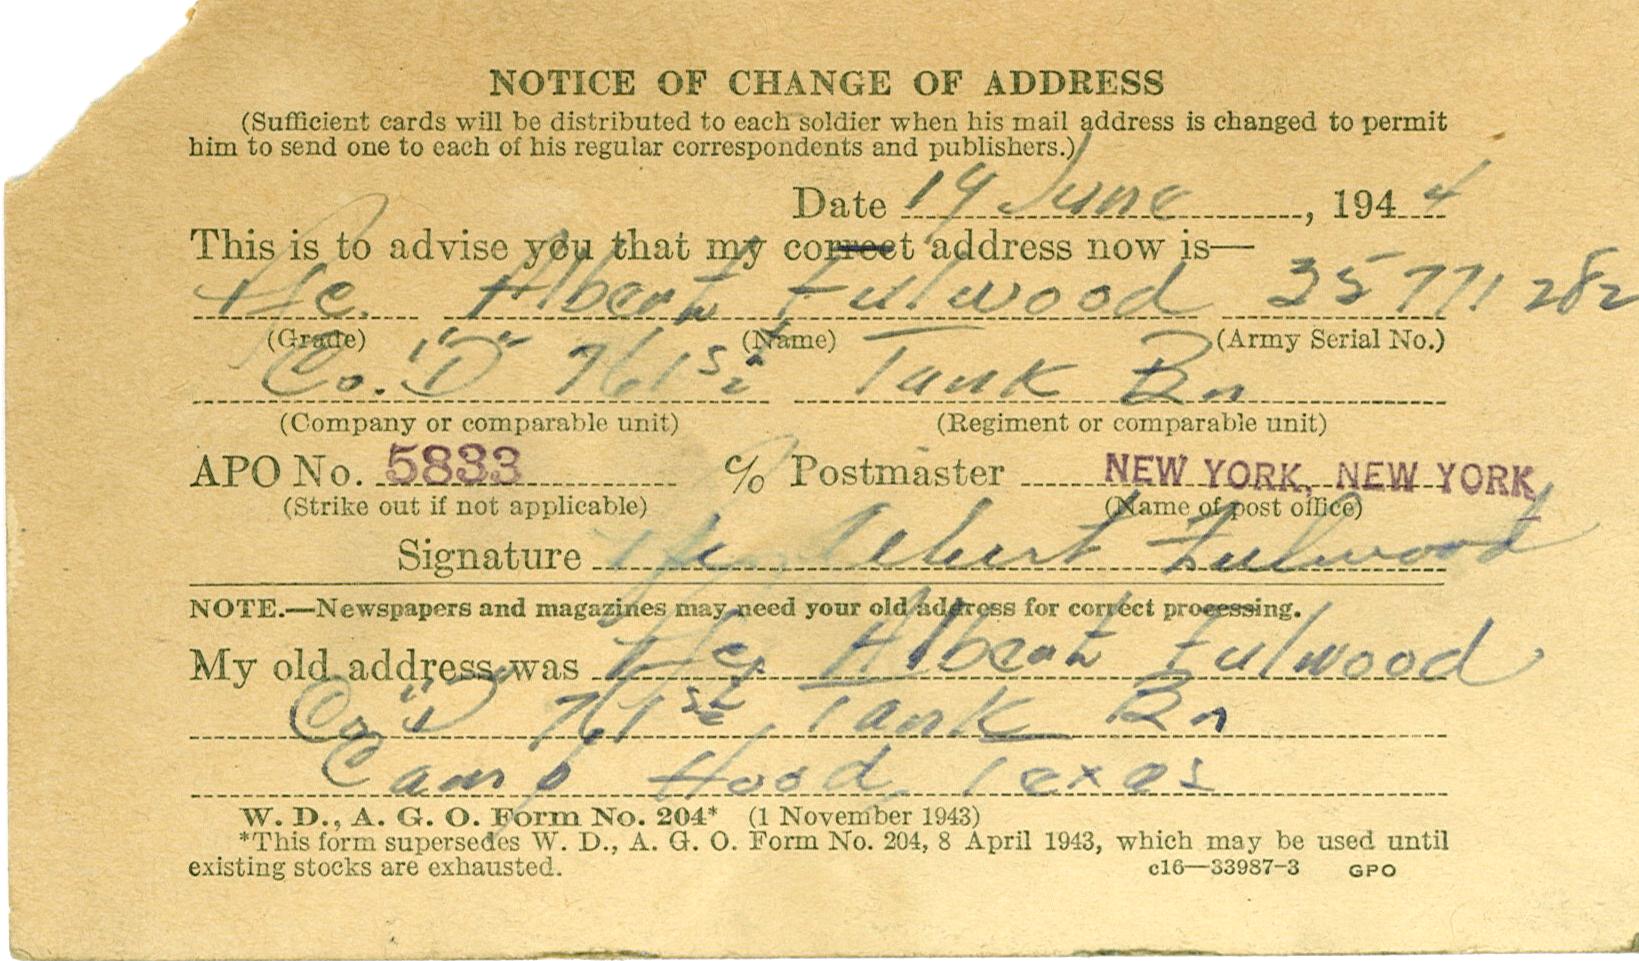 NOTICE OF CHANGE OF ADDRESS
(Sufficient cards will be distributed to each soldier when his mail address is changed to permit
him to send one to each of his regular correspondents and publishers.)
Date 19 June, 194 4
This is to advise you that my correct address now is—
Pfc. Albert Fulwood 35771282
(Grade) (Name) (Army Serial No.)
Co. "D" 761st Tank Bn
(Company or comparable unit) (Regiment or comparable unit)
APO No. 5833 % Postmaster NEW YORK, NEW YORK
(Strike out if not applicable) (Name of post office)
Signature Pfc Albert Fulwood
NOTE.—Newspapers and magazines may need your old address for correct processing.
My old address was Pfc. Albert Fulwood
Co "D" 761st Tank Bn
Camp Hood Texas
W. D., A. G. O. Form No. 204* (1 November 1943)
*This form supersedes W. D., A. G. O. Form No. 204, 8 April 1943, which may be used until
existing stocks are exhausted. c16—33987-3 GPO